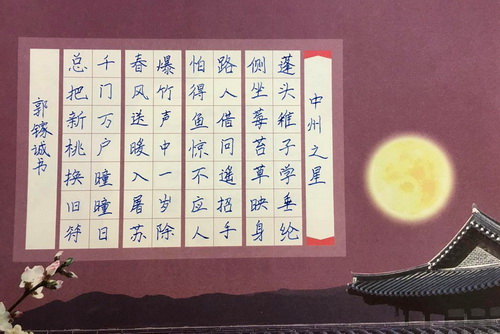 中州之星
蓬头稚子学垂纶
侧坐莓苔草映身
路人借问遥招手
怕得鱼惊不应人
爆竹声中一岁除
春风送暖入屠苏
千门万户瞳瞳日
总把新桃换旧符
郭镓诚书